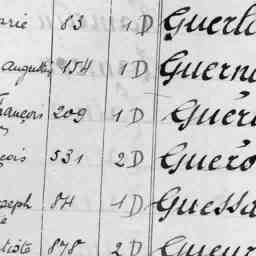 arie 83 1D Guerl
augustin 154 1D Guern
rançois 209 1D Guér
çois 531 2D Guéro
seph 84 1D Guessa
tiste 878 2D Gueur